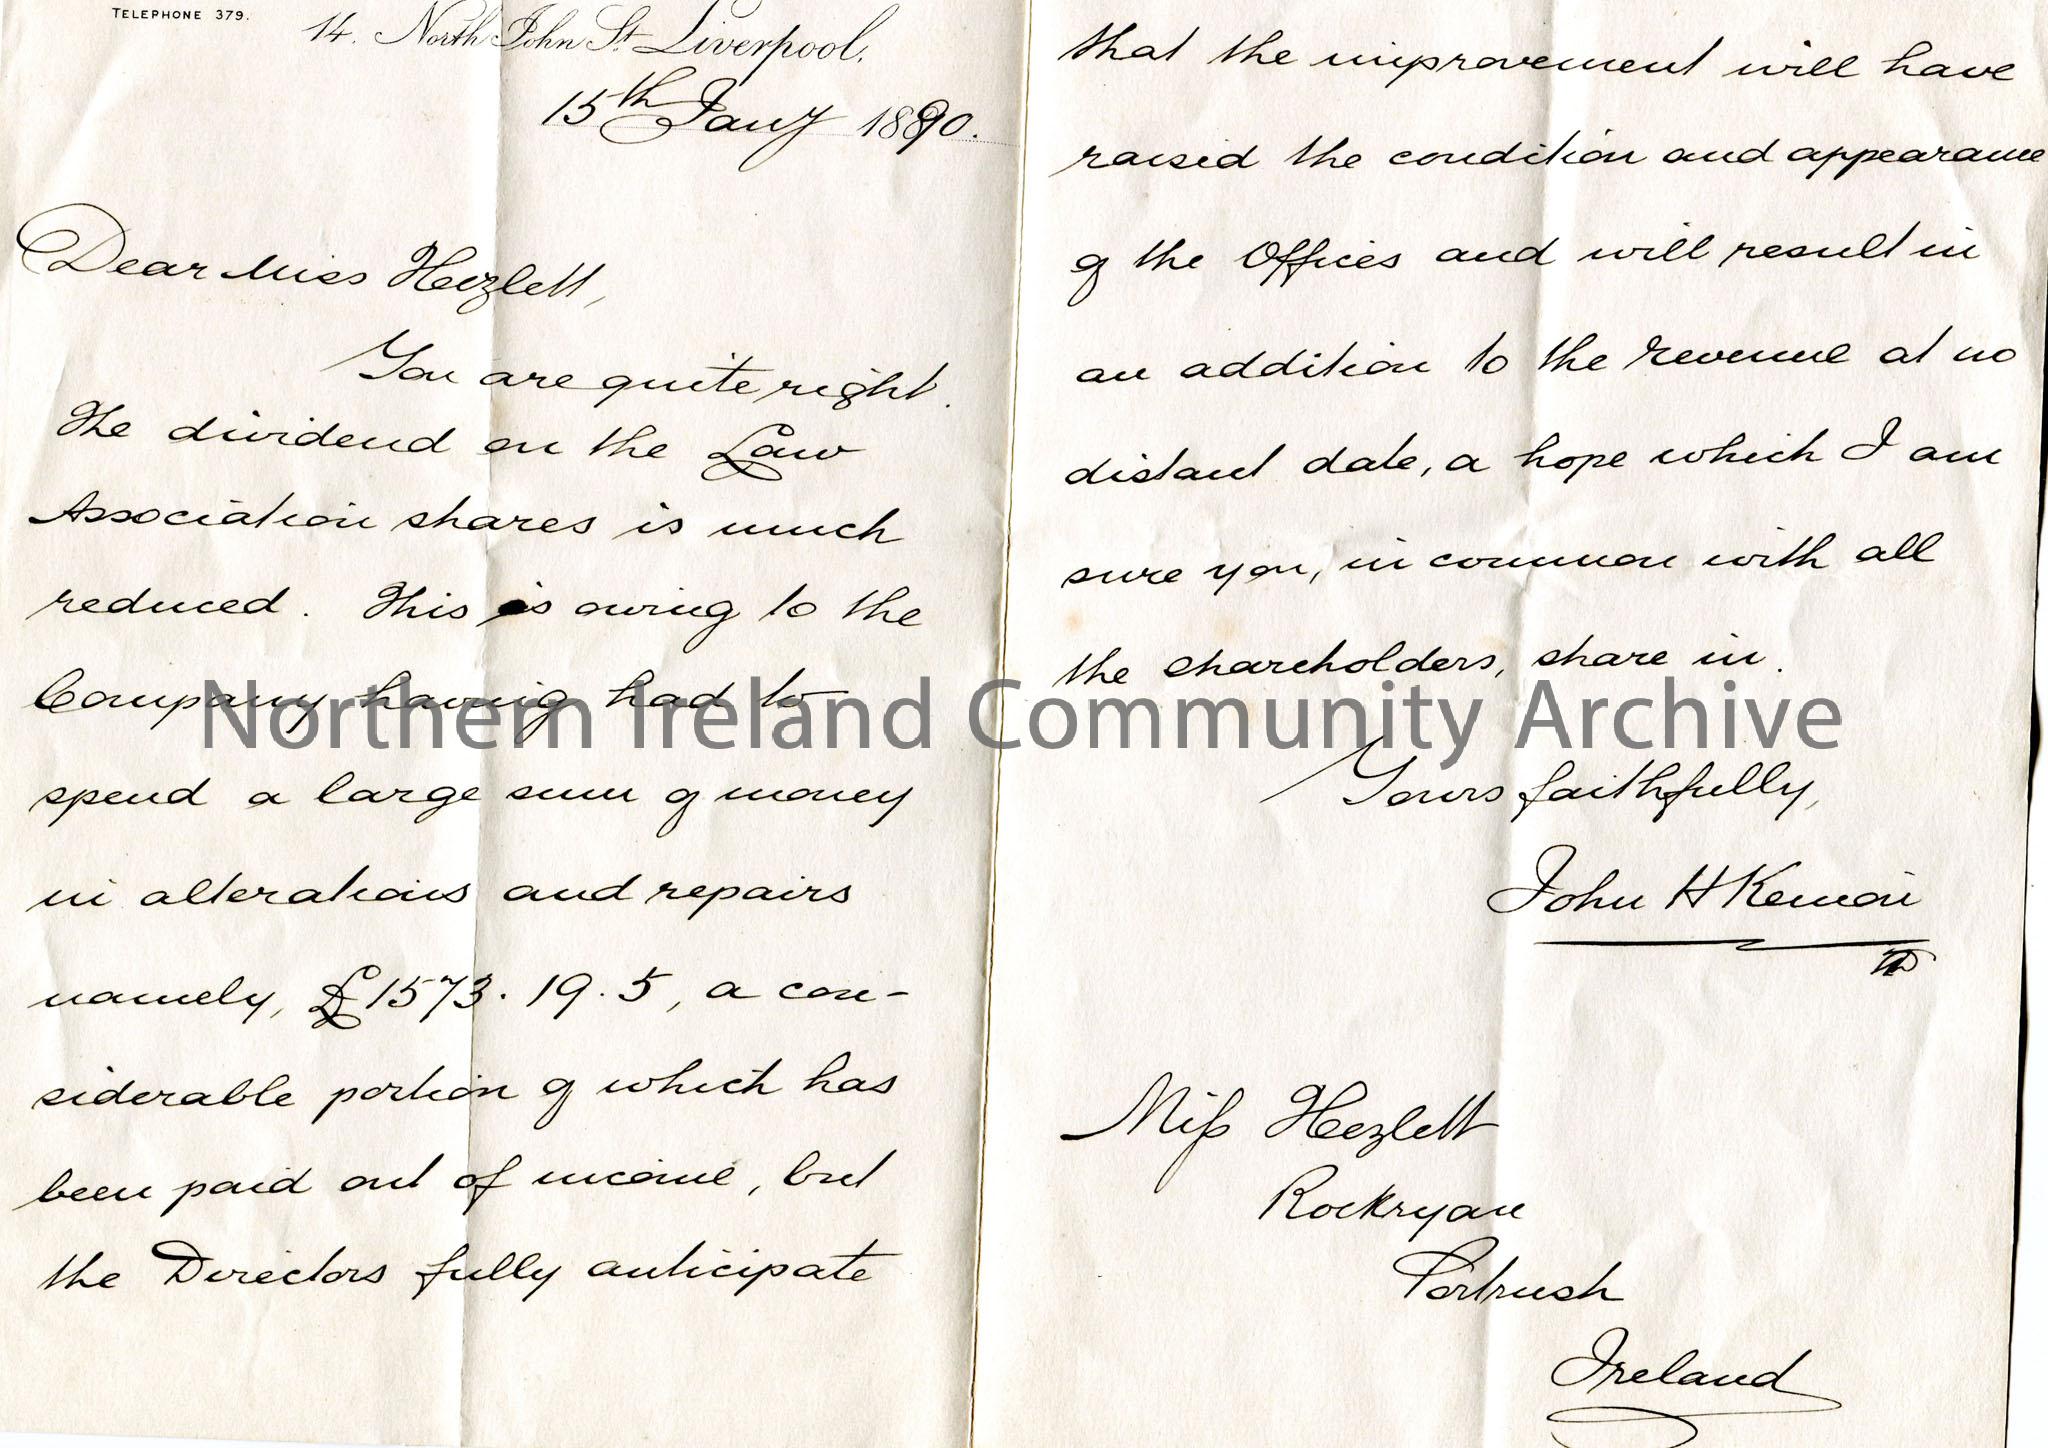 TELEPHONE 379.
14. North John St. Liverpool.
15th Jany 1890.
Dear Miss Hezlett,
You are quite right.
The dividend on the Law
Association shares is much
reduced. This is owing to the
Company having had to
spend a large sum of money
in alterations and repairs
namely, £1573.19.5, a con-
siderable portion of which has
been paid out of income, but
the Directors fully anticipate
that the improvement will have
raised the condition and appearance
of the Offices and will result in
an addition to the revenue at no
distant date, a hope which I am
sure you, in common with all
the shareholders, share in.
Yours faithfully,
John H Kenion
Miss Hezlett
Rockryan
Portrush
Ireland
Northern Ireland Community Archive